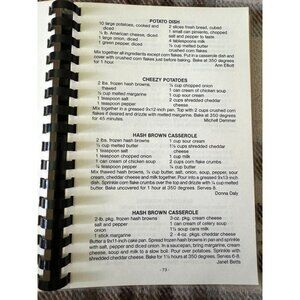 POTATO DISH
10 large potatoes, cooked and diced
½ lb. American cheese, diced
1 large onion, diced
1 green pepper, diced
2 slices fresh bread, cubed
1 small can pimiento, chopped
salt and pepper to taste
4 tablespoons milk
½ cup melted butter
crushed corn flakes
Mix together all ingredients except corn flakes. Put in a casserole dish and cover with crushed corn flakes just before baking. Bake at 350 degrees
Ann Elliott
CHEEZY POTATOES
2 lbs. frozen hash browns, thawed
½ cup melted margarine
1 teaspoon salt
¼ teaspoon pepper
½ cup chopped onion
1 can cream of chicken soup
1 cup sour cream
2 cups shredded cheddar cheese
Mix together in a greased 9x12-inch pan. Top with 2 cups crushed corn flakes if desired and drizzle with melted margarine. Bake at 350 degrees for 45 minutes.
Michell Demmer
HASH BROWN CASSEROLE
2 lbs. frozen hash browns
½ cup melted butter
1 teaspoon salt
¼ teaspoon pepper
½ cup chopped onion
1 can cream of chicken soup
1 cup sour cream
2 cups shredded cheddar cheese
2 cups corn flake crumbs
¼ cup melted butter
Mix thawed hash browns, ½ cup butter, salt, onion, soup, pepper, sour cream, cheddar cheese and milk together. Pour into a greased 9x13-inch dish. Sprinkle corn flake crumbs over the top and drizzle with ¼ cup melted butter. Bake uncovered for 1 hour at 350 degrees. Serves 8.
Donna Daly
HASH BROWN CASSEROLE
2-lb. pkg. frozen hash browns
salt and pepper
onion
1 stick margarine
3-oz. pkg. cream cheese
1 can cream of celery soup
1 soup can milk
2 - 4-oz. pkgs. cheddar cheese
Butter a 9x11-inch cake pan. Spread frozen hash browns in pan and sprinkle with salt, pepper and diced onion. In a saucepan, bring margarine, cream cheese, soup and milk to a slow boil. Pour over potatoes. Sprinkle with shredded cheddar cheese. Bake for 1½ hours at 350 degrees. Serves 6-8.
Janet Betts
-73-